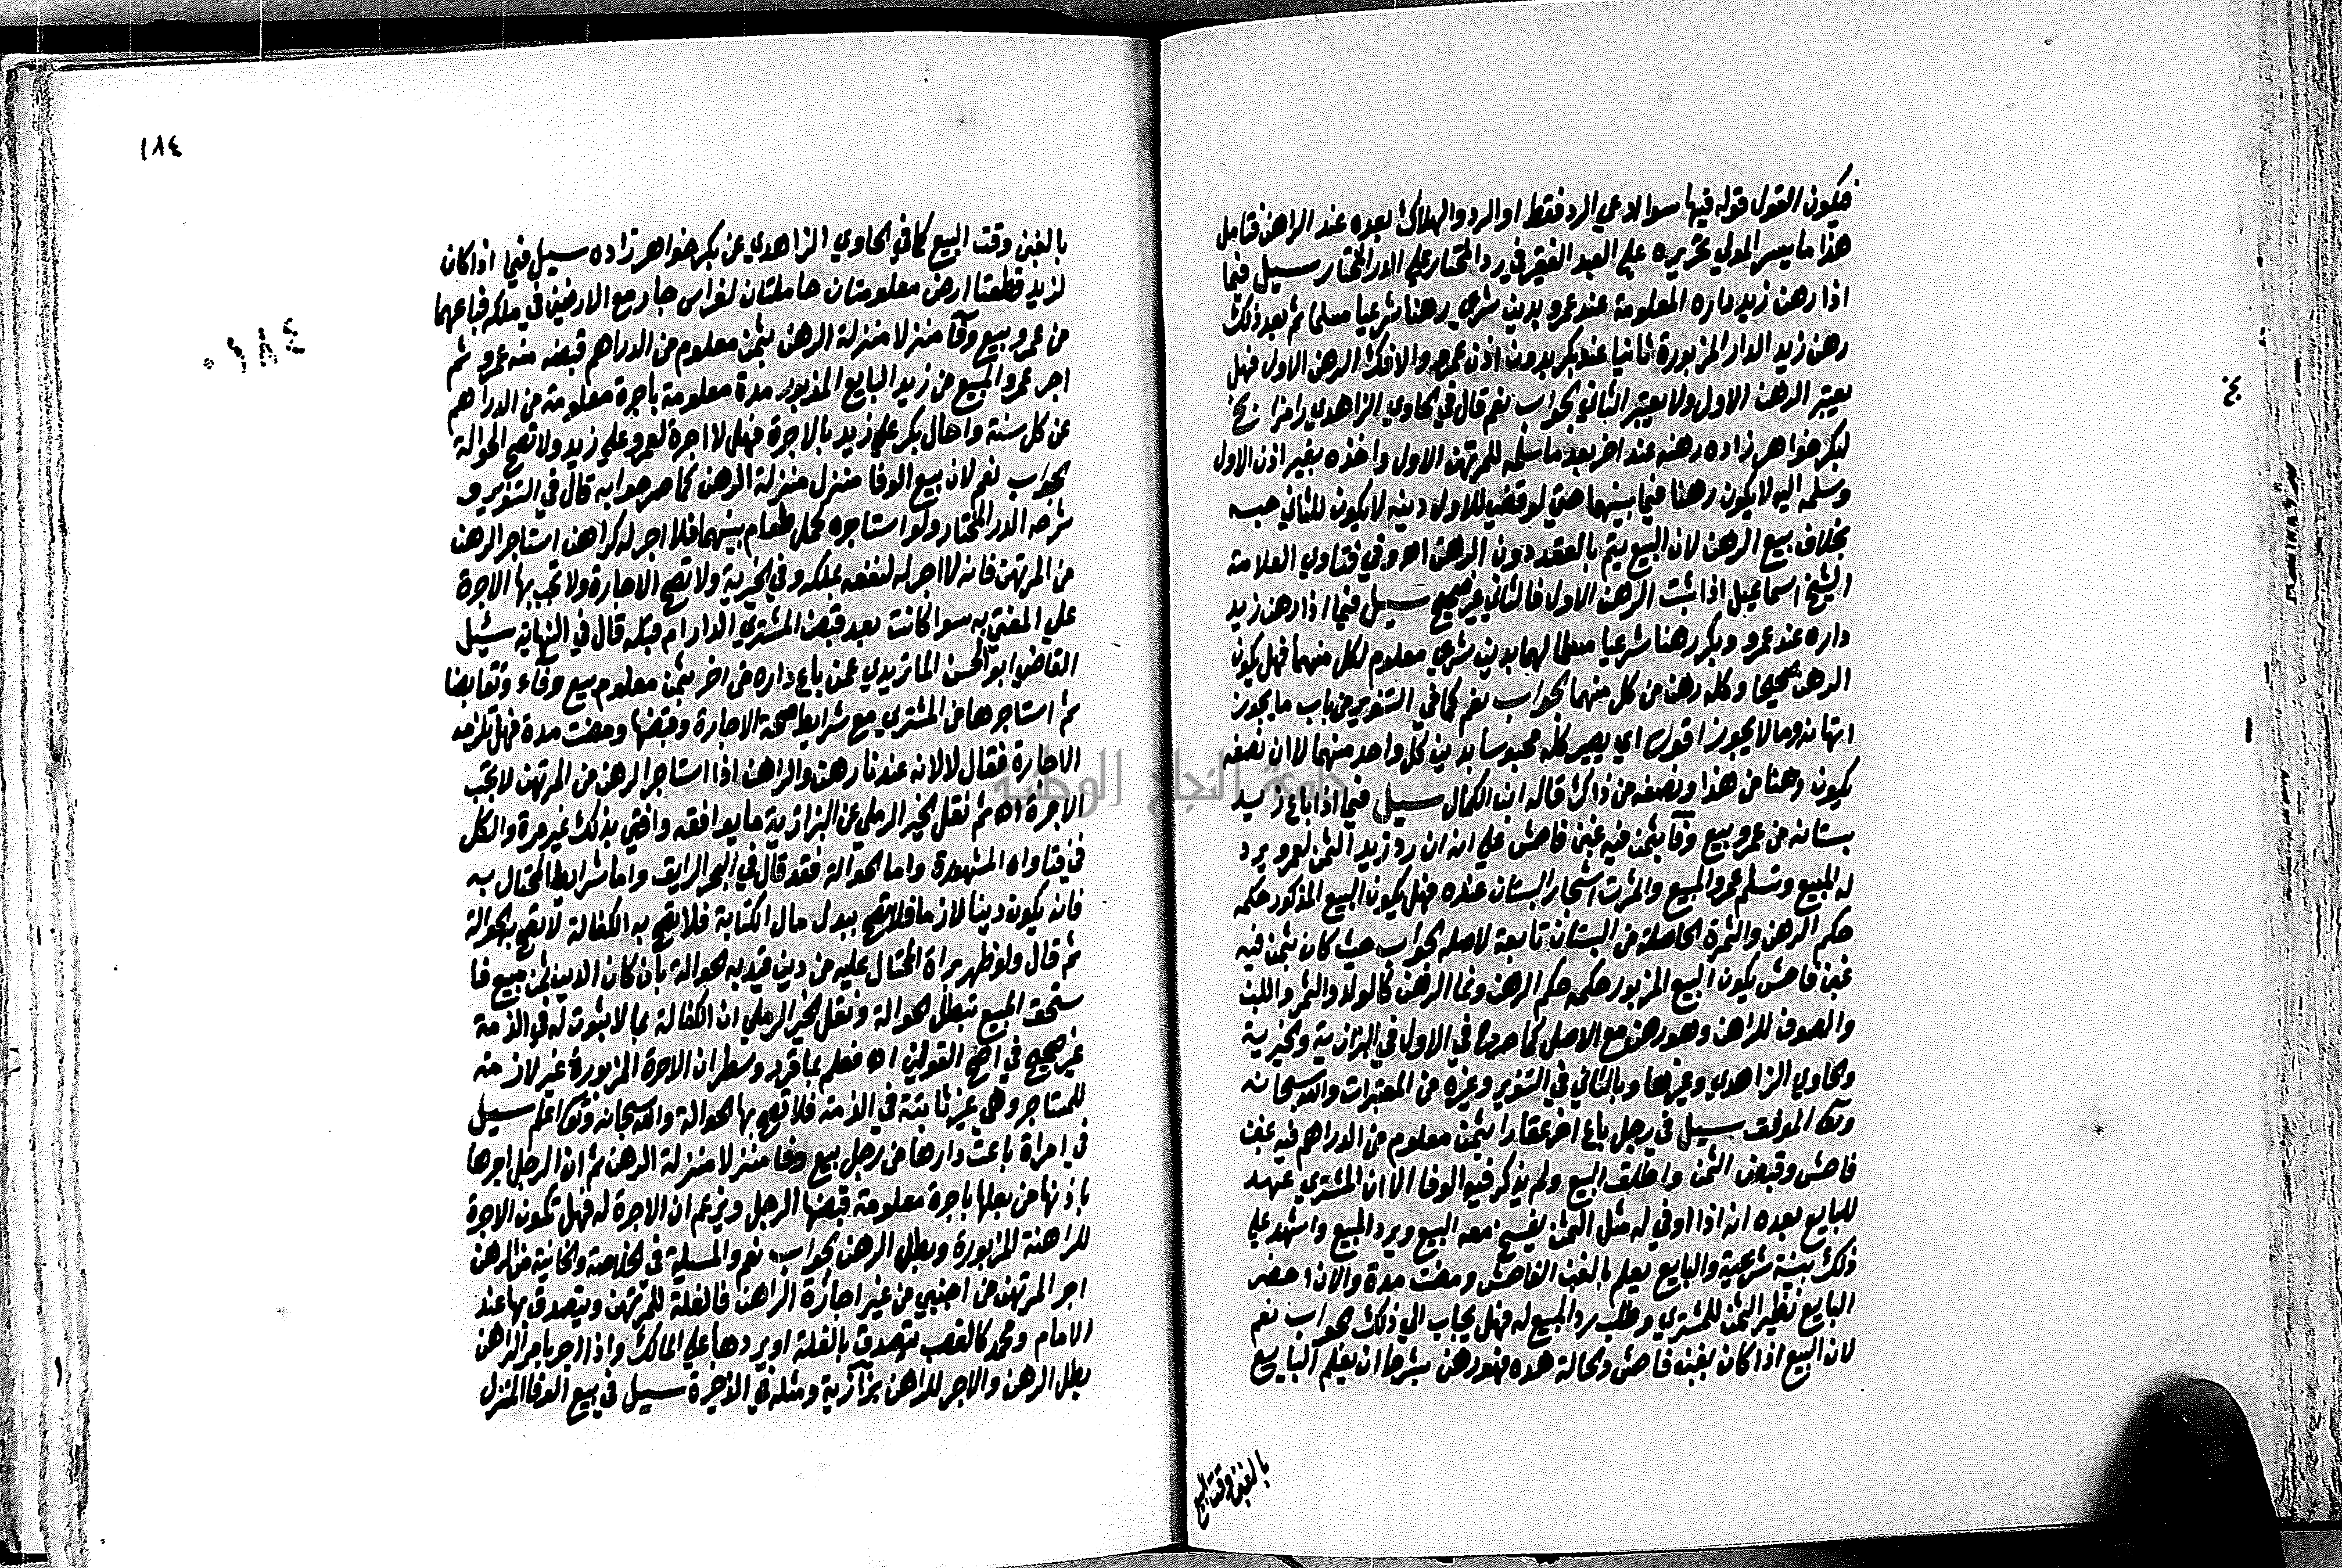 فيكون القول قوله فيها سوا ادعي الرد فقط او الرد والهلاك بعده عند الراهن فتامل
هذا ما يسر المولي تحريره علي العبد الفقير في رد المحتار علي الدر المختار سيل فيما
اذا رهن زيد داره المعلومة عند عمرو بدين شرعي رهنا شرعيا مسلما ثم بعد ذلك
رهن زيد الدار المزبورة ثانيا عند بكر بدون اذن عمرو والافك الرهن الاول فهل
يعتبر الرهن الاول ولا يعتبر الثاني الجواب نعم قال في الحاوي الزاهدي رامزا بخ
لبكر خواهر زاده رهنه عند اخر بعد ما سلمه للمرتهن الاول واخذه بغير اذن الاول
وسلمه اليه لا يكون رهنا فيما بينهما حتي لو قضي للاول دينه لا يكون للثاني حبسه
بخلاف بيع الرهن لان البيع يتم بالعقد دون الرهن اه وفي فتاوي العلامة
الشيخ اسماعيل اذا ثبت الرهن الاول فالثاني غير صحيح سيل فيما اذا رهن زيد
داره عند عمرو وبكر رهنا شرعيا مسلما لهما بدين شرعي معلوم لكل منهما فهل يكون
الرهن صحيحا وكله رهن من كل منهما الجواب نعم كما في التنوير من باب ما يجوز
ارتهانه وما لا يجوز اقول اي يصير كله محبوسا بدين كل واحد منهما لا ان نصفه
يكون رهنا من هذا ونصفه من ذاك قاله ابن الكمال سيل فيما اذا باع زيد
بستانه من عمرو بيع وفآ بثمن فيه غبن فاحش علي انه ان رد زيد الثمن لعمرو يرد
له المبيع وتسلم عمرو المبيع واثمرت اشجار البستان عنده فهل يكون البيع المذكور حكمه
حكم الرهن والثمرة الحاصلة من البستان تابعة لاصله الجواب حيث كان بثمن فيه
غبن فاحش يكون البيع المزبور حكمه حكم الرهن ونما الرهن كالولد والثمر واللبن
والصوف للراهن وهو رهن مع الاصل كما صرح في الاول في البزازية والخيرية
والحاوي الزاهدي وغيرها وبالثاني في التنوير وغيره من المعتبرات والله سبحانه
وتعالي الموفق سيل في رجل باع اخر عقارا بثمن معلوم من الدراهم فيه غبن
فاحش وقبض الثمن واطلق البيع ولم يذكر فيه الوفا الا ان المشتري عهد
للبايع بعده انه اذا اوفي له مثل الثمن يفسخ معه البيع ويرد المبيع واشهد علي
ذلك بينة شرعية والبايع يعلم بالغبن الفاحش ومضت مدة والان احضر
البايع نظير الثمن للمشتري وطلب رد المبيع له فهل يجاب الي ذلك الجواب نعم
لان البيع اذا كان بغبن فاحش والحالة هذه فهو رهن بشرط ان يعلم البايع
بالغبن وقت البيع
١٨٤
بالغبن وقت البيع كما في الحاوي الزاهدي عن بكر خواهر زاده سيل فيما اذا كان
لزيد قطعتا ارض معلومتان حاملتان لغراس جار مع الارضين في ملكه فباعهما
من عمرو بيع وفآ منزلا منزلة الرهن بثمن معلوم من الدراهم قبضه منه عمرو ثم
اجر عمرو المبيع من زيد البايع المذبور مدة معلومة باجرة معلومة من الدراهم
عن كل سنة واحال بكر علي زيد بالاجرة فهل لا اجرة لعمرو علي زيد ولا تصح الحوالة
الجواب نعم لان بيع الوفا منزل منزلة الرهن كما صرحوا به قال في التنوير و
شرحه الدر المختار ولو استاجره لحمل طعام بينهما فلا اجر له كراهن استاجر الرهن
من المرتهن فانه لا اجر له لنفعه بملكه وفي الخيرية ولا تصح الاجارة ولا تجب بها الاجرة
علي المفتي به سوا كانت بعد قبض المشتري الدار ام قبله قال في النهاية سيل
القاضي ابو الحسن الماتريدي عمن باع داره من اخر بثمن معلوم بيع وفآء وتقابضا
ثم استاجرها من المشتري مع شرايط صحة الاجارة وقبضها ومضت مدة فهل تلزمه
الاجارة فقال لا لانه عندنا رهن والراهن اذا استاجر الرهن من المرتهن لا تجب
الاجرة اه ثم نقل الخير الرملي عن البزازية ما يوافقه وافتي بذلك غير مرة والكل
في فتاواه المشهورة واما الحوالة فقد قال في البحر الرايق واما شرايط المحتال به
فانه يكون دينا لازما فلا تصح ببدل مال الكتابة فلا تصح به الكفالة لا تصح به الحوالة
ثم قال ولو ظهر براة المحتال عليه من دين قيد به الحوالة بان كان الدين ثمن مبيع فا
ستحق المبيع تبطل الحوالة ونقل الخير الرملي ان الكفالة بما لا ثبوت له في الذمة
غير صحيح في اصح القولين اه فعلم بما قرر وسطر ان الاجرة المزبورة غير لازمة
للمستاجر وهي غير ثابتة في الذمة فلا تصح بها الحوالة والله سبحانه وتعالي اعلم سيل
في امراة باعت دارها من رجل بيع وفا منزلا منزلة الرهن ثم ان الرجل اجرها
باذنها من بعلها باجرة معلومة قبضها الرجل ويزعم ان الاجرة له فهل تكون الاجرة
للراهنة المزبورة وبطل الرهن الجواب نعم والمسيلة في الخلاصة والخانية من الرهن
اجر المرتهن من اجنبي من غير اجازة الراهن فالغلة للمرتهن ويتصدق بها عند
الامام ومحمد كالغصب يتصدق بالغلة او يردها علي المالك واذا اجر بامر الراهن
بطل الرهن والاجر للراهن بزآزية ومثله في الذخيرة سيل في بيع الوفا المنزل
جامعة النجاح الوطنية